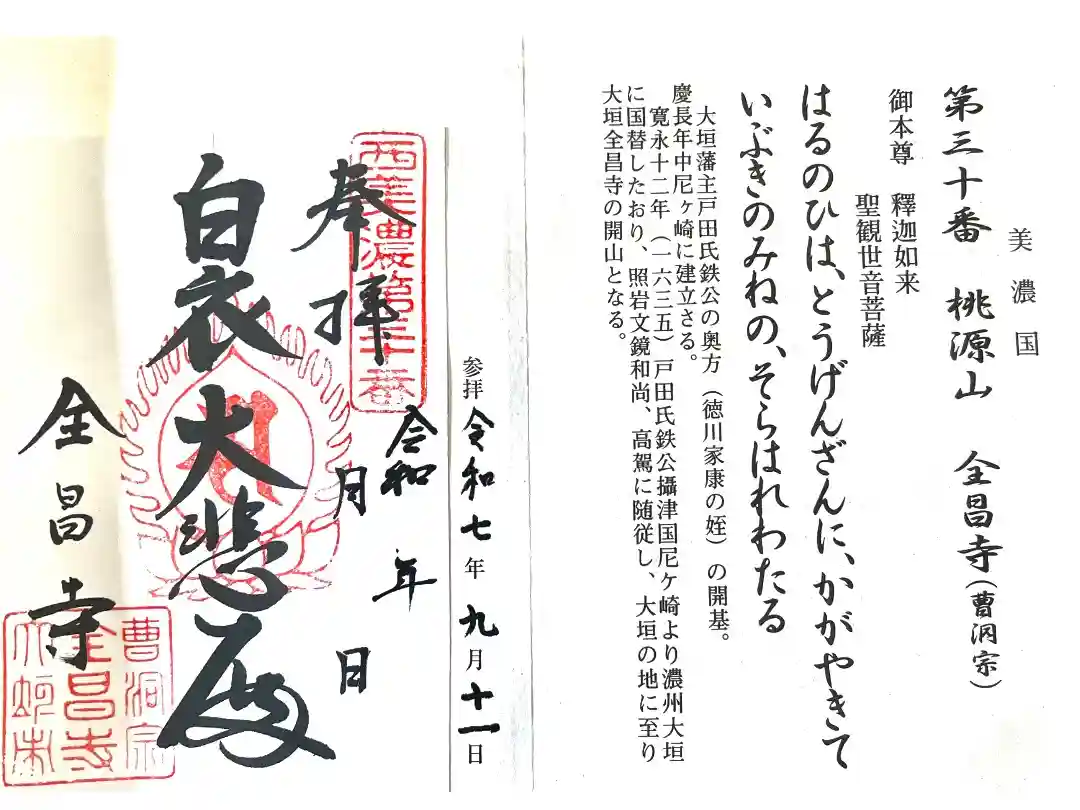 美濃国
第三十番 桃源山 全昌寺(曹洞宗)
御本尊 釋迦如来
聖観世音菩薩
はるのひは、とうげんざんに、かがやきて
いぶきのみねの、そらはれわたる
大垣藩主戸田氏鉄公の奥方(徳川家康の姪)の開基。
慶長年中尼ヶ崎に建立さる。
寛永十二年(一六三五)戸田氏鉄公攝津国尼ヶ崎より濃州大垣
に国替したおり、照岩文鏡和尚、高駕に随従し、大垣の地に至り
大垣全昌寺の開山となる。
参拝 令和七年九月十一日
西美濃第三十番
奉拝
令和 年
月 日
白衣大悲殿
全昌寺
曹洞宗
全昌寺
大垣市